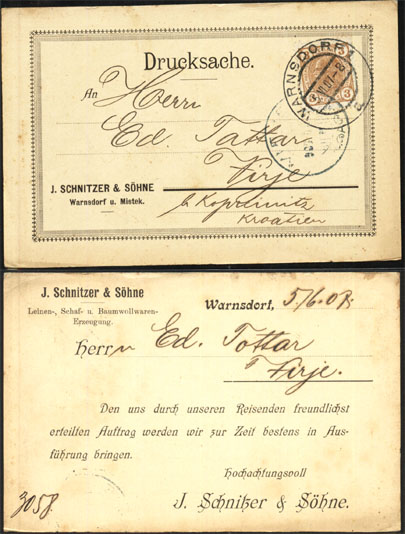 Drucksache.
WARNSDORF
3 3
An Herrn
Ed. Tottar
Virje
J. SCHNITZER & SÖHNE
Warnsdorf u. Mistek.
b. Kopreinitz
Kroatien
J. Schnitzer & Söhne
Leinen-, Schaf- u. Baumwollwaren-
Erzeugung.
Warnsdorf, 5/6.07.
Herrn Ed. Tottar
Virje.
Den uns durch unseren Reisenden freundlichst
erteilten Auftrag werden wir zur Zeit bestens in Aus-
führung bringen.
Hochachtungsvoll
J. Schnitzer & Söhne.
3058.